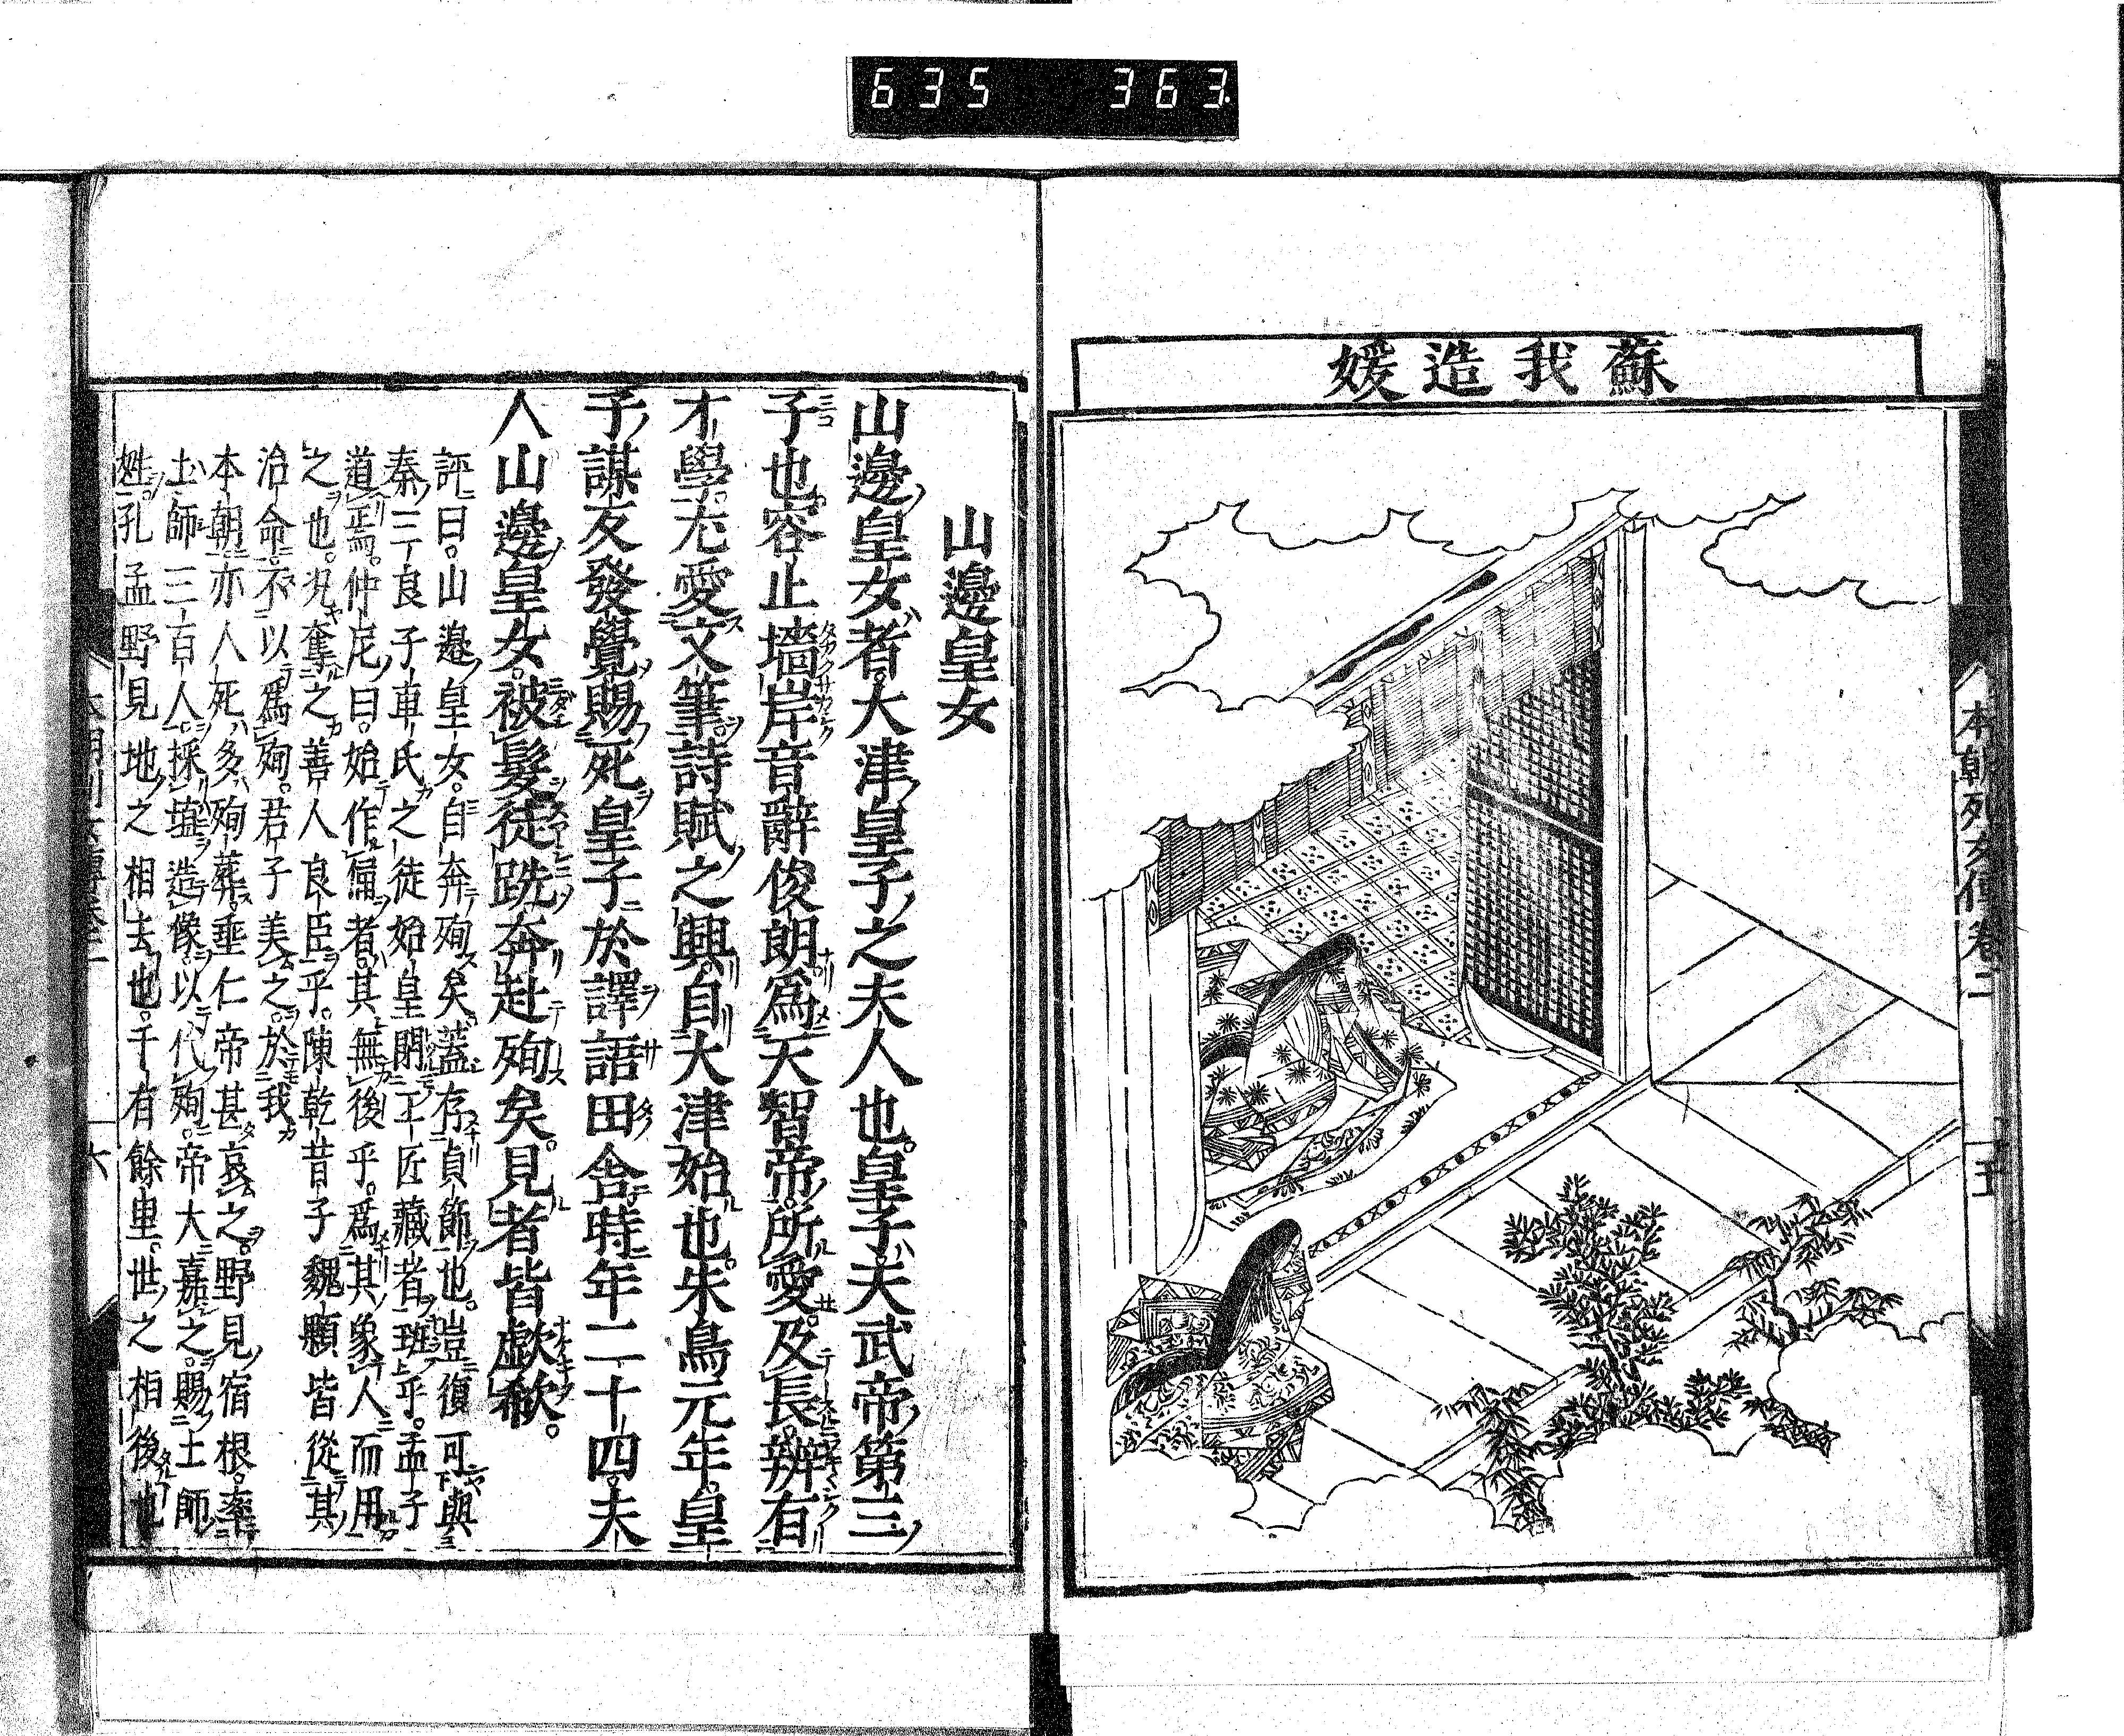 635 363
蘇我造媛
本朝列女傳卷二
五
山邊皇女
山邊皇女者。大津皇子之夫人也。皇子天武帝第三
子也。容止墻岸音辭俊朗爲天智帝所愛。及長辨有
才學。尤愛文筆詩賦之興。自大津始也。朱鳥元年。皇
子謀反發覺賜死皇子於譯語田舍時年二十四。夫
人山邊皇女。被髮徒跣奔赴殉矣。見者皆歔欷。
評曰。山邊皇女。自奔殉矣。蓋存貞節也。豈復可與
秦三良子車氏之徒始皇閉工匠藏者班乎。孟子
道焉。仲尼曰。始作俑者。其無後乎。爲其象人而用
之也。况奪之善人良臣乎。陳乾昔子魏顆皆從其
治命。不以爲殉。君子美之。於我
本朝亦人死多殉葬垂仁帝甚哀之。野見宿根。率
土師三百人。採埴造像以代殉。帝大嘉之。賜土師
姓。孔孟野見地之相去也。千有餘里。世之相後也
六